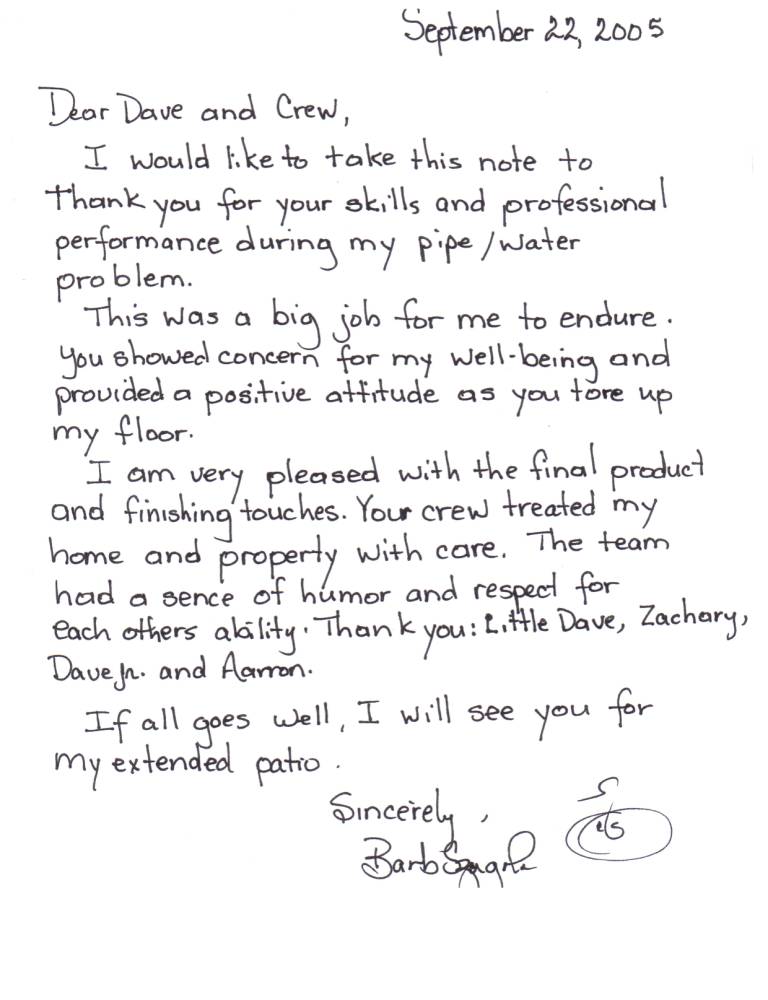 September 22, 2005
Dear Dave and Crew,
I would like to take this note to
thank you for your skills and professional
performance during my pipe/water
problem.
This was a big job for me to endure.
You showed concern for my well-being and
provided a positive attitude as you tore up
my floor.
I am very pleased with the final product
and finishing touches. Your crew treated my
home and property with care. The team
had a sence of humor and respect for
each others ability. Thank you: Little Dave, Zachary,
Dave Jr. and Aarron.
If all goes well, I will see you for
my extended patio.
Sincerely,
Barb